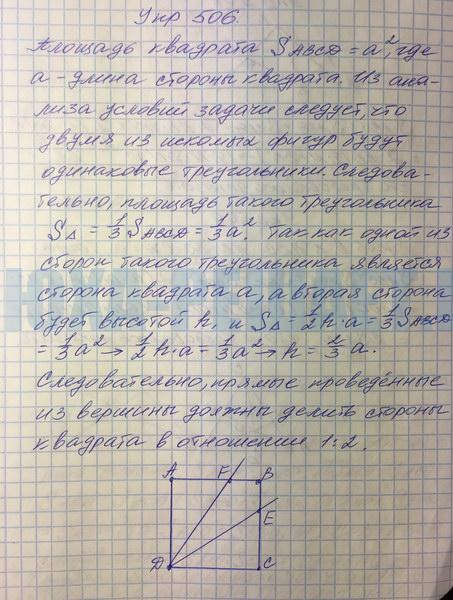 Упр 506.
Площадь квадрата S ABCD = a², где
a - длина стороны квадрата. Из ана-
лиза условий задачи следует, что
двумя из искомых фигур будут
одинаковые треугольники. Следова-
тельно, площадь такого треугольника
S△ = 1/3 S ABCD = 1/3 a². Так как одной из
сторон такого треугольника является
сторона квадрата a, а вторая сторона
будет высотой h, и S△ = 1/2 h·a = 1/3 S ABCD
= 1/3 a² → 1/2 h·a = 1/3 a² → h = 2/3 a.
Следовательно, прямые проведённые
из вершины должны делить стороны
квадрата в отношении 1:2.
A F B
E
D C